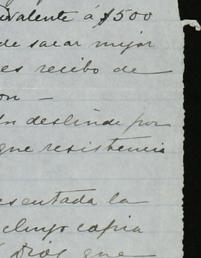 ivalente á $500
de sacar mejor
es recibo de
on —
deslinde por
que resistencia
esentada la
cuya copia
Dios que